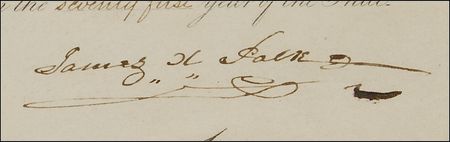 the seventy first Year of the
James K Polk